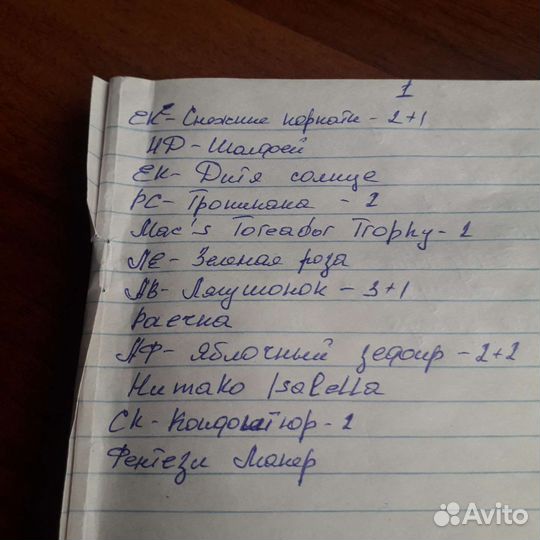 1
ЕК- Снежные карпаты - 2+1
НД- Шалфей
ЕК- Дитя солнце
РС- Трошкака - 2
Mac's Toreador Trophy - 2
ЛЕ- Зеленая роза
АВ- Лягушонок - 3+1
Раечка
АФ- Яблочный зефир - 2+2
Humako Isabella
СК- Кондитюр - 2
Фентези Макер
Avito